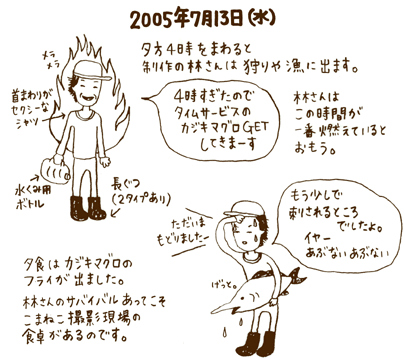 2005年7月13日(水)
夕方4時をまわると
制作の林さんは狩りや漁に出ます。
メラ
メラ
首まわりが
セクシーな
シャツ
4時すぎたので
タイムサービスの
カジキマグロGET
してきまーす
林さんは
この時間が
一番燃えていると
おもう。
水くみ用
ボトル
長ぐつ
(2タイプあり)
ただいま
もどりましたー
もう少しで
刺されるところ
でしたよ。
イヤー
あぶないあぶない
げっと。
夕食はカジキマグロの
フライが出ました。
林さんのサバイバルあってこそ
こまねこ撮影現場の
食卓があるのです。